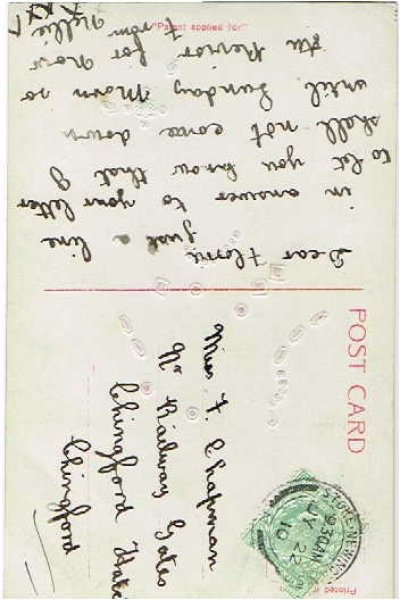 POST CARD
"Patent applied for"
Dear Florrie
just a line
in answer to your letter
to let you know that I
shall not come down
until Sunday Morn so
Au Revoir for Now
From Nellie
Miss F. Chapman
Nr Railway Gates
Chingford Hatc
Chingford
STOKE NEWING
9.30AM
JY 22
10
Printed in